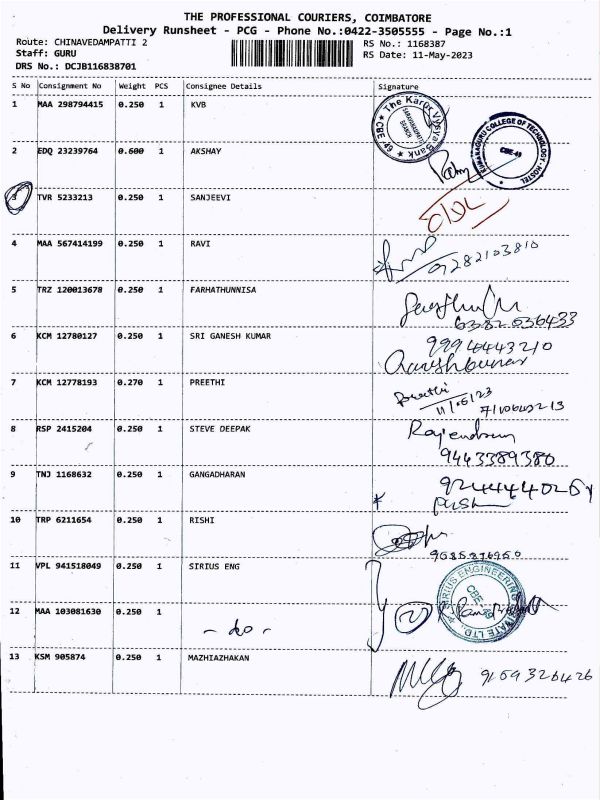 THE PROFESSIONAL COURIERS, COIMBATORE
Delivery Runsheet - PCG - Phone No.:0422-3505555 - Page No.:1
Route: CHINAVEDAMPATTI 2
Staff: GURU
DRS No.: DCJB116838701
RS No.: 1168387
RS Date: 11-May-2023
S No Consignment No Weight PCS Consignee Details Signature
1 MAA 298794415 0.250 1 KVB
The Karur Vysya Bank CBE-49
2 EDQ 23239764 0.600 1 AKSHAY
KUMARAGURU COLLEGE OF TECHNOLOGY - HOSTEL CBE-49
3 TVR 5233213 0.250 1 SANJEEVI
4 MAA 567414199 0.250 1 RAVI
9282103810
5 TRZ 120013678 0.250 1 FARHATHUNNISA
6382036433
6 KCM 12780127 0.250 1 SRI GANESH KUMAR
9994443210
7 KCM 12778193 0.270 1 PREETHI
preethi
11/05/23
8 RSP 2415204 0.250 1 STEVE DEEPAK
Rajendran
9443389380
9 TNJ 1168632 0.250 1 GANGADHARAN
10 TRP 6211654 0.250 1 RISHI
11 VPL 941518049 0.250 1 SIRIUS ENG
SIRIUS ENGINEERING PRIVATE LTD.
12 MAA 103081630 0.250 1 - do -
13 KSM 905874 0.250 1 MAZHIAZHAKAN
9159326426